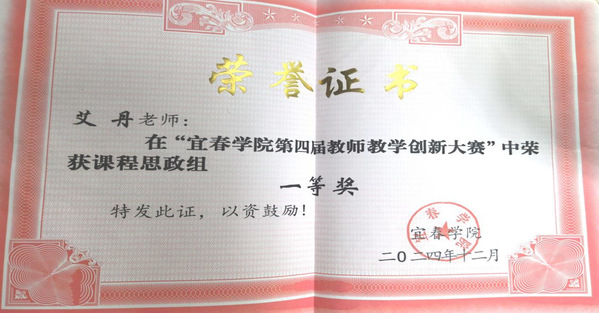 荣誉证书
艾丹老师：
在“宜春学院第四届教师教学创新大赛”中荣
获课程思政组
一等奖
特发此证，以资鼓励！
宜春学院
宜春学院
二〇二四年十二月